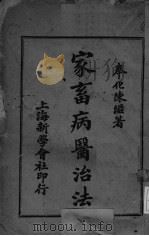 奉化陳著
家畜病醫治法
上海新學會社印行